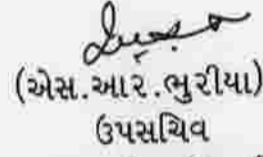 (એસ.આર.ભુરીયા)
ઉપસચિવ